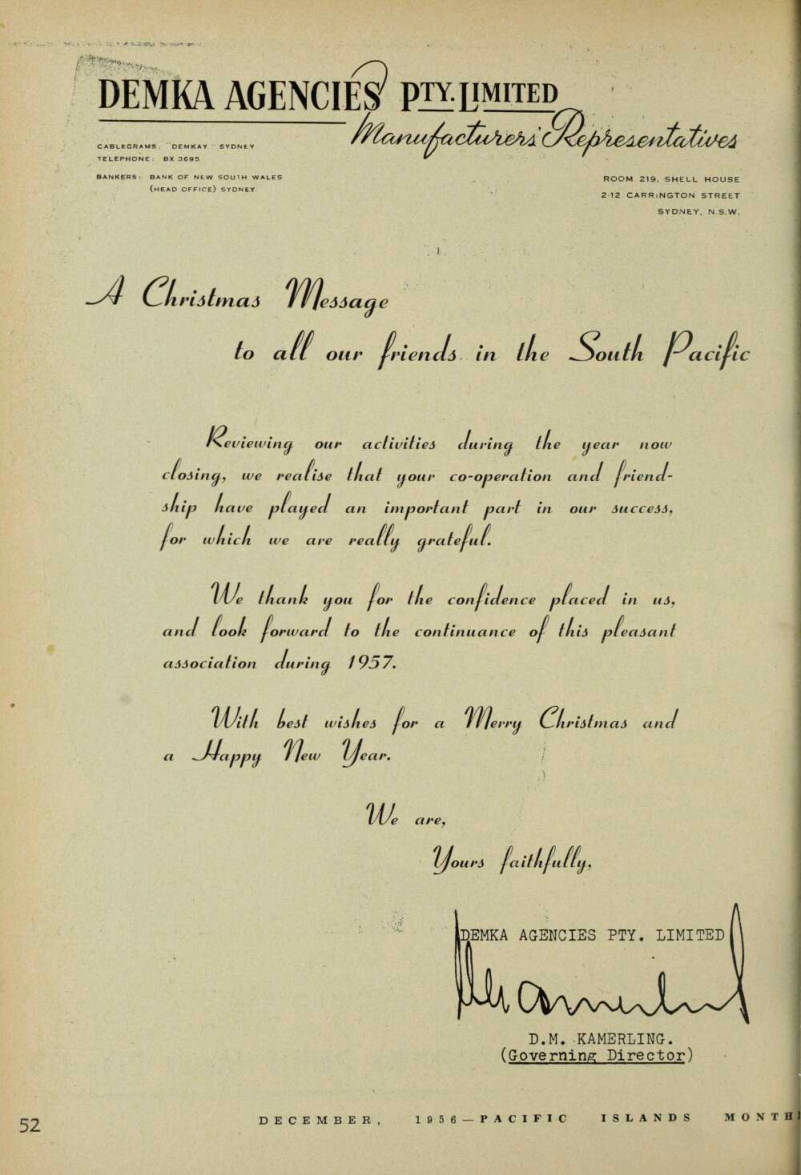 DEMKA AGENCIES PTY. LIMITED
Manufacturers' Representatives
CABLEGRAMS: "DEMKAY" SYDNEY
TELEPHONE: BX 3695
BANKERS: BANK OF NEW SOUTH WALES
(HEAD OFFICE) SYDNEY
ROOM 219, SHELL HOUSE
2-12 CARRINGTON STREET
SYDNEY, N.S.W.
A Christmas Message
to all our friends in the South Pacific
Reviewing our activities during the year now
closing, we realise that your co-operation and friend-
ship have played an important part in our success,
for which we are really grateful.
We thank you for the confidence placed in us,
and look forward to the continuance of this pleasant
association during 1957.
With best wishes for a Merry Christmas and
a Happy New Year.
We are,
Yours faithfully,
DEMKA AGENCIES PTY. LIMITED
D.M. KAMERLING.
(Governing Director)
52
DECEMBER, 1956—PACIFIC ISLANDS MONTH